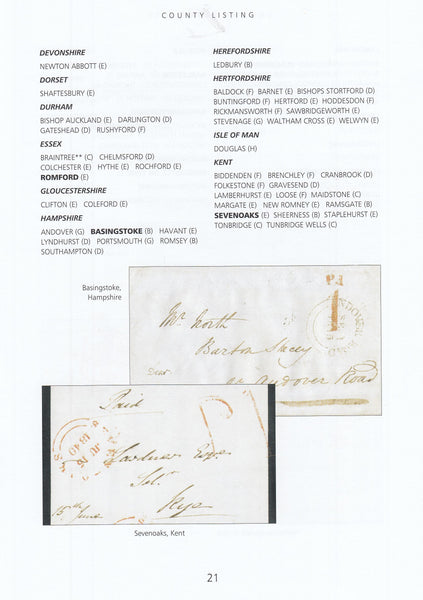 COUNTY LISTING
DEVONSHIRE
NEWTON ABBOTT (E)
DORSET
SHAFTESBURY (E)
DURHAM
BISHOP AUCKLAND (E) DARLINGTON (D)
GATESHEAD (D) RUSHYFORD (F)
ESSEX
BRAINTREE** (C) CHELMSFORD (D)
COLCHESTER (E) HYTHE (E) ROCHFORD (E)
ROMFORD (E)
GLOUCESTERSHIRE
CLIFTON (E) COLEFORD (E)
HAMPSHIRE
ANDOVER (G) BASINGSTOKE (B) HAVANT (E)
LYNDHURST (D) PORTSMOUTH (G) ROMSEY (B)
SOUTHAMPTON (D)
HEREFORDSHIRE
LEDBURY (B)
HERTFORDSHIRE
BALDOCK (F) BARNET (E) BISHOPS STORTFORD (D)
BUNTINGFORD (F) HERTFORD (E) HODDESDON (F)
RICKMANSWORTH (F) SAWBRIDGEWORTH (E)
STEVENAGE (G) WALTHAM CROSS (E) WELWYN (E)
ISLE OF MAN
DOUGLAS (H)
KENT
BIDDENDEN (F) BRENCHLEY (F) CRANBROOK (D)
FOLKESTONE (F) GRAVESEND (D)
LAMBERHURST (E) LOOSE (F) MAIDSTONE (C)
MARGATE (E) NEW ROMNEY (E) RAMSGATE (B)
SEVENOAKS (E) SHEERNESS (B) STAPLEHURST (E)
TONBRIDGE (C) TUNBRIDGE WELLS (C)
Basingstoke,
Hampshire
Pd
1
Mr. North
Barton Stacey
Near
Andover Road
Paid
1840
Gardner Esqr.
Rye
15th June
Sevenoaks, Kent
21